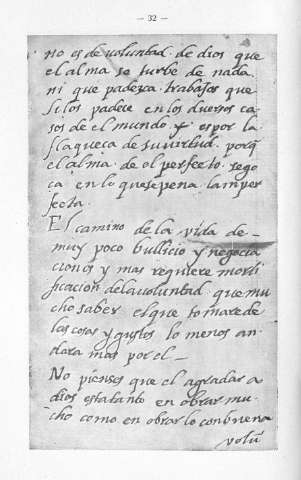 — 32 —
no es de voluntad de dios que
el alma se turbe de nada.
ni que padezca trabajos que
si los padece en los diversos ca
sos de el mundo es por la
flaqueça de su virtud. porq
el alma de el perfecto se go
ça en lo que se pena la imper
fecta.
El camino de la vida de
muy poco bullicio y negocia
ciones y mas requiere morti
ficacion de la voluntad que mu
cho saber el que tomare de
las cosas y gustos lo menos an
dara mas por el —
No pienses que el agradar a
dios esta tanto en obrar mu
cho como en obrarlo con buena
volū